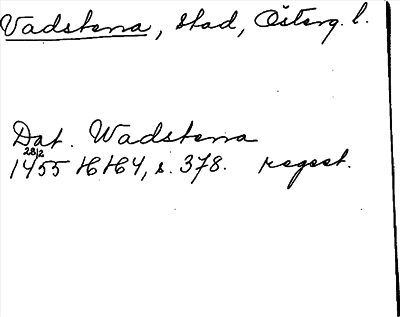 Vadstena, stad, Österg. l.
Dat. Wadstena
28/2
1455 HH4, s. 378. regest.